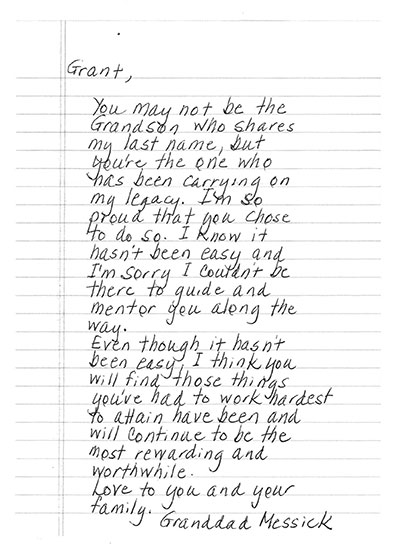 Grant,
You may not be the
Grandson who shares
my last name, but
you're the one who
has been carrying on
my legacy. I'm so
proud that you chose
to do so. I know it
hasn't been easy and
I'm sorry I couldn't be
there to guide and
mentor you along the
way.
Even though it hasn't
been easy, I think you
will find those things
you've had to work hardest
to attain have been and
will continue to be the
most rewarding and
worthwhile.
Love to you and your
family. Granddad Messick